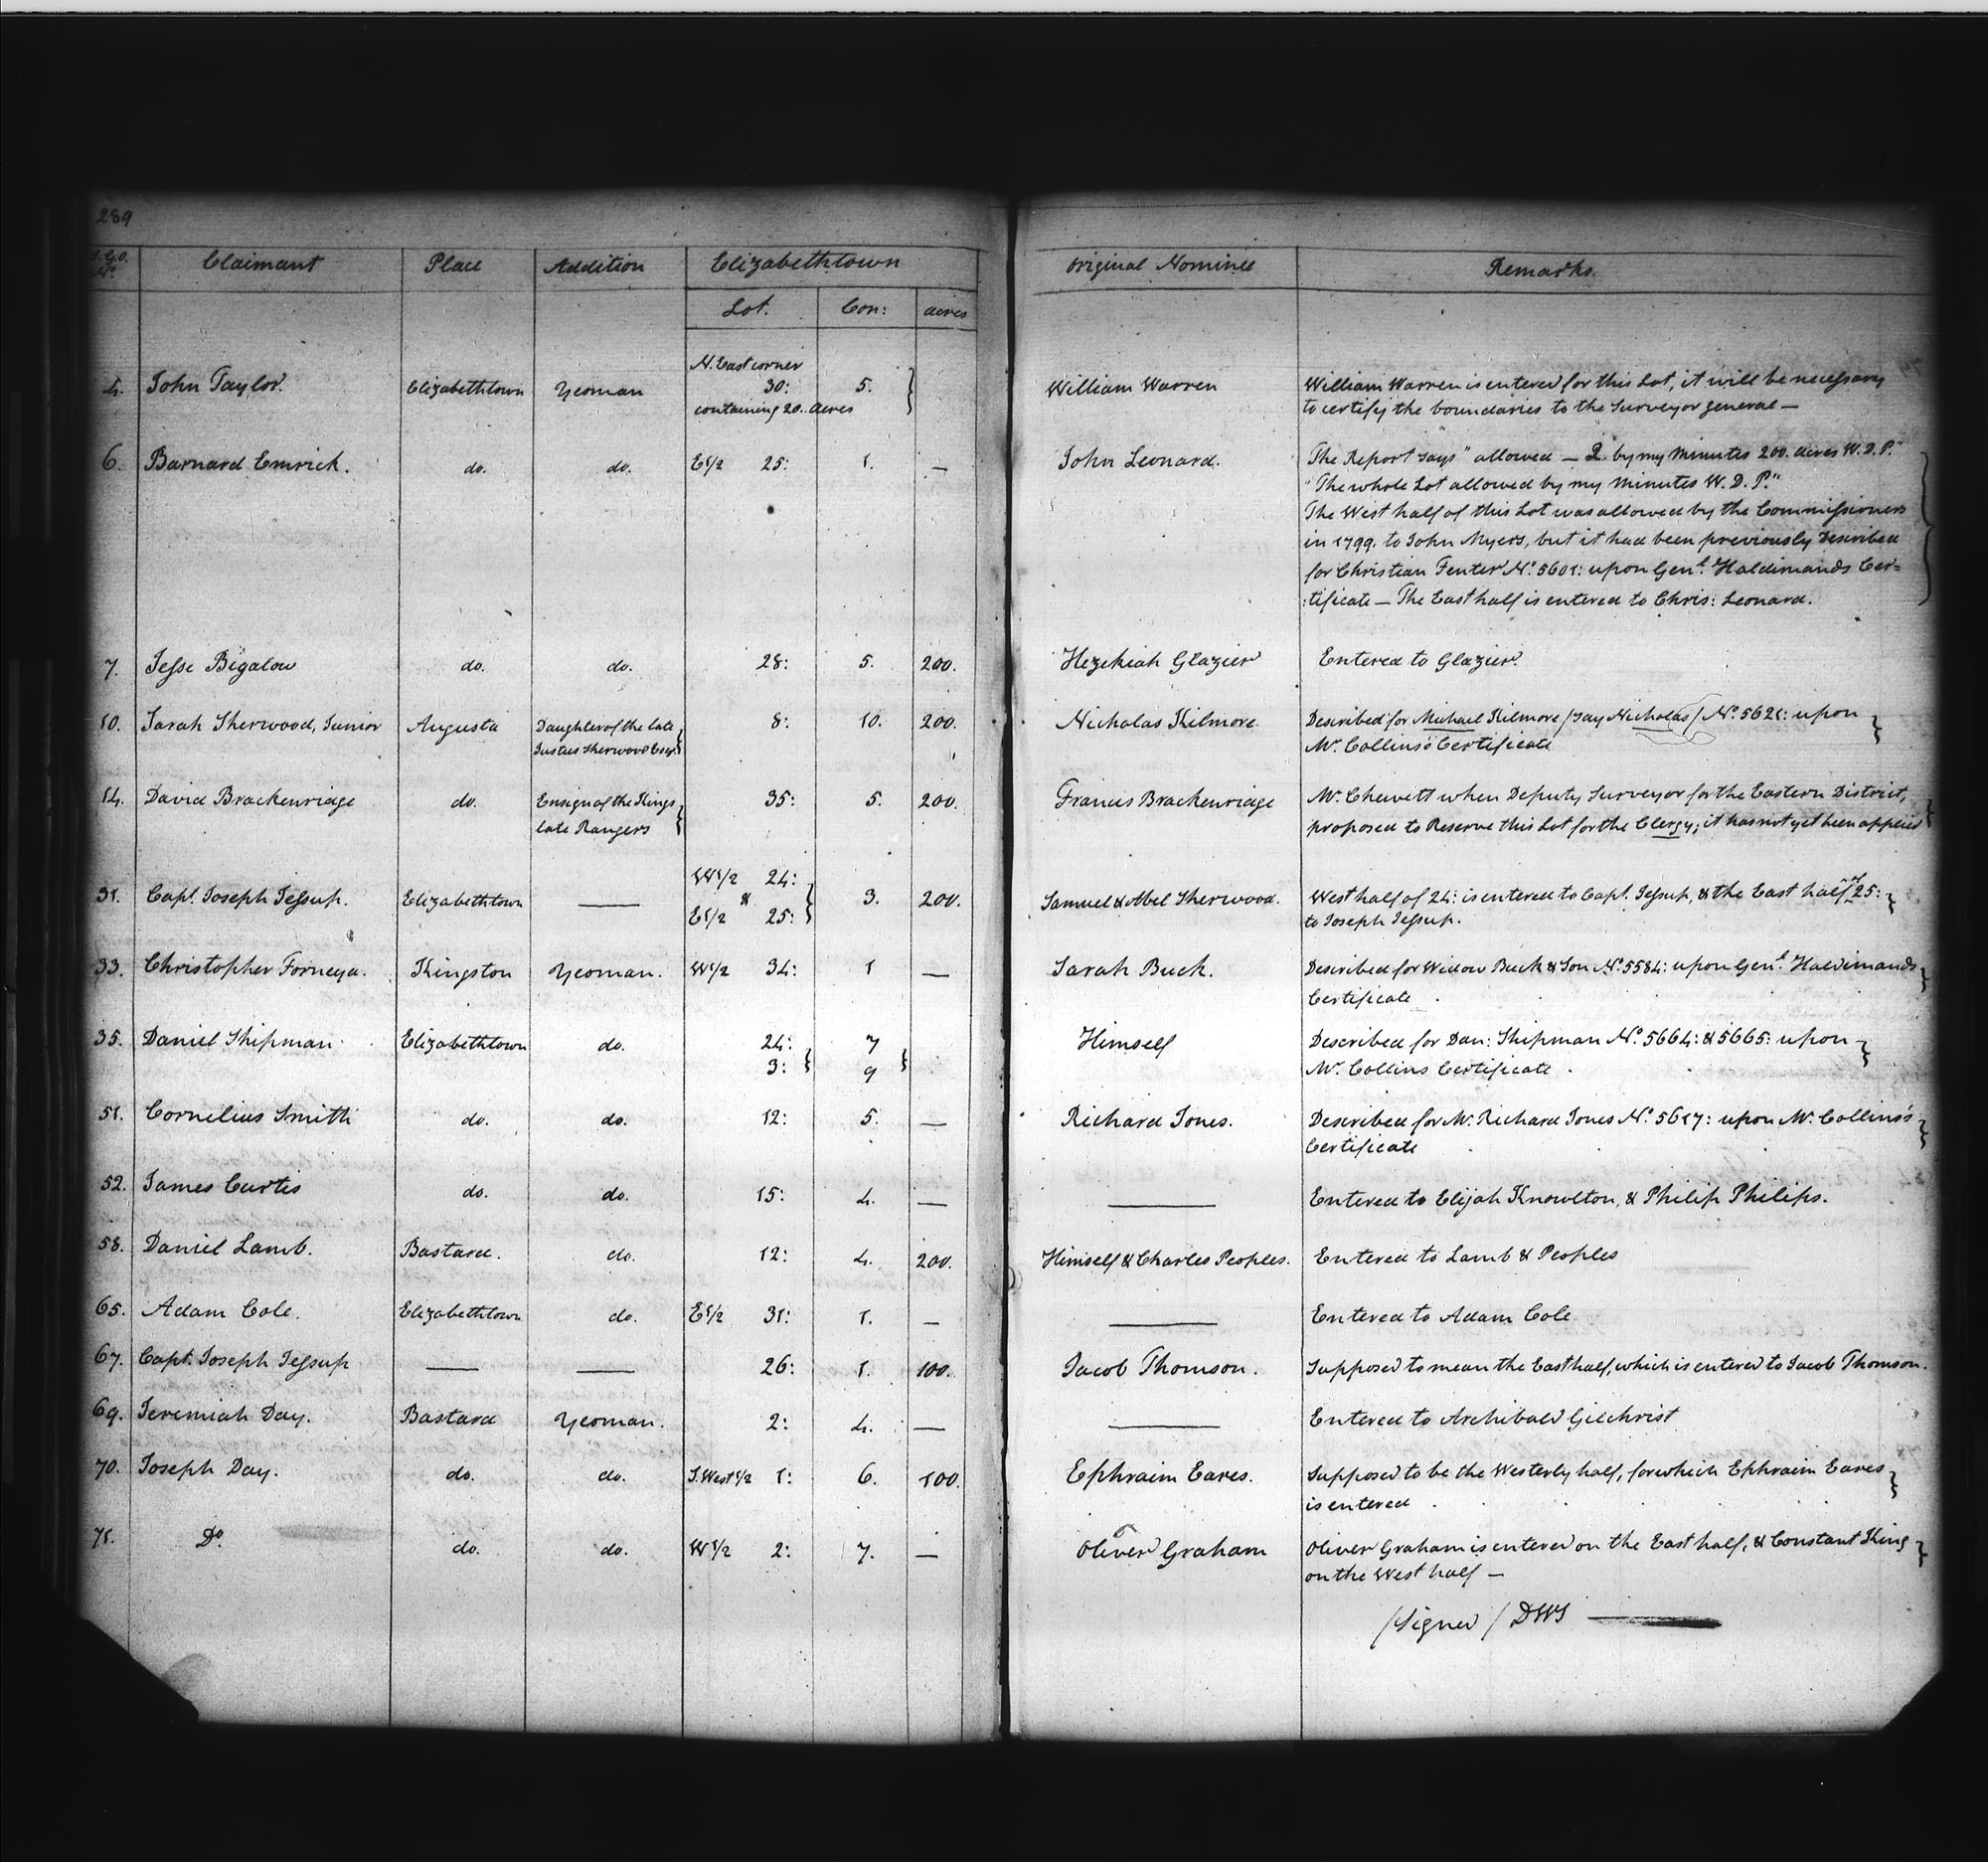 289
S.G.O. No. Claimant Place Addition Elizabethtown Original Nominee Remarks.
Lot. Con: acres
N. East corner
4. John Taylor. Elizabethtown Yeoman 30: 5. } William Warren William Warren is entered for this Lot, it will be necessary
containing 20. acres to certify the boundaries to the Surveyor general —
6. Barnard Emrick. do. do. E 1/2 25: 1. — John Leonard. The Report says "allowed — Q. by my minutes 200. acres W. D. P."
"The whole Lot allowed by my minutes W. D. P."
The West half of this Lot was allowed by the Commissioners
in 1799. to John Myers, but it had been previously Described
for Christian Fenter No. 5601: upon Genl. Haldimands Cer=
:tificate — The East half is entered to Chris: Leonard. }
7. Jesse Bigalow do. do. 28: 5. 200. Hezekiah Glazier Entered to Glazier.
10. Sarah Sherwood, Junior Augusta Daughter of the late 8: 10. 200. Nicholas Kilmore Described for Michael Kilmore / Say Nicholas / No. 5621: upon }
Justus Sherwood Esqr. } Mr. Collins's Certificate
14. David Brackenridge do. Ensign of the Kings 35: 5. 200. Francis Brackenridge Mr. Chewett when Deputy Surveyor for the Eastern District,
late Rangers } proposed to Reserve this Lot for the Clergy; it has not yet been applied }
W 1/2 24:
31. Capt. Joseph Jessup. Elizabethtown — & } 3. 200. Samuel & Abel Sherwood. West half of 24: is entered to Capt. Jessup, & the East half of 25: }
E 1/2 25: to Joseph Jessup.
33. Christopher Forneya. Kingston Yeoman. W 1/2 34: 1 — Sarah Buck. Described for Widow Buck & Son No. 5584: upon Genl. Haldimands }
Certificate
35. Daniel Shipman Elizabethtown do. 24: 7 Himself Described for Dan: Shipman No. 5664: & 5665: upon }
3: } 9 } Mr. Collins Certificate
51. Cornelius Smith do. do. 12: 5. — Richard Jones. Described for Mr. Richard Jones No. 5617: upon Mr. Collins's }
Certificate
52. James Curtis do. do. 15: 4. — — Entered to Elijah Knowlton, & Philip Philips.
58. Daniel Lamb. Bastard. do. 12: 4. 200. Himself & Charles Peoples. Entered to Lamb & Peoples
65. Adam Cole. Elizabethtown do. E 1/2 31: 1. — — Entered to Adam Cole
67. Capt. Joseph Jessup — — 26: 1. 100. Jacob Thomson. Supposed to mean the East half, which is entered to Jacob Thomson.
69. Jeremiah Day. Bastard Yeoman. 2: 4. — — Entered to Archibald Gilchrist
70. Joseph Day. do. do. S. West 1/2 1: 6. 100. Ephraim Eares. Supposed to be the Westerly half, for which Ephraim Eares }
is entered
71. Do. do. do. W 1/2 2: 7. — Oliver Graham Oliver Graham is entered on the East half, & Constant King }
on the West half —
/Signed/ DWS —